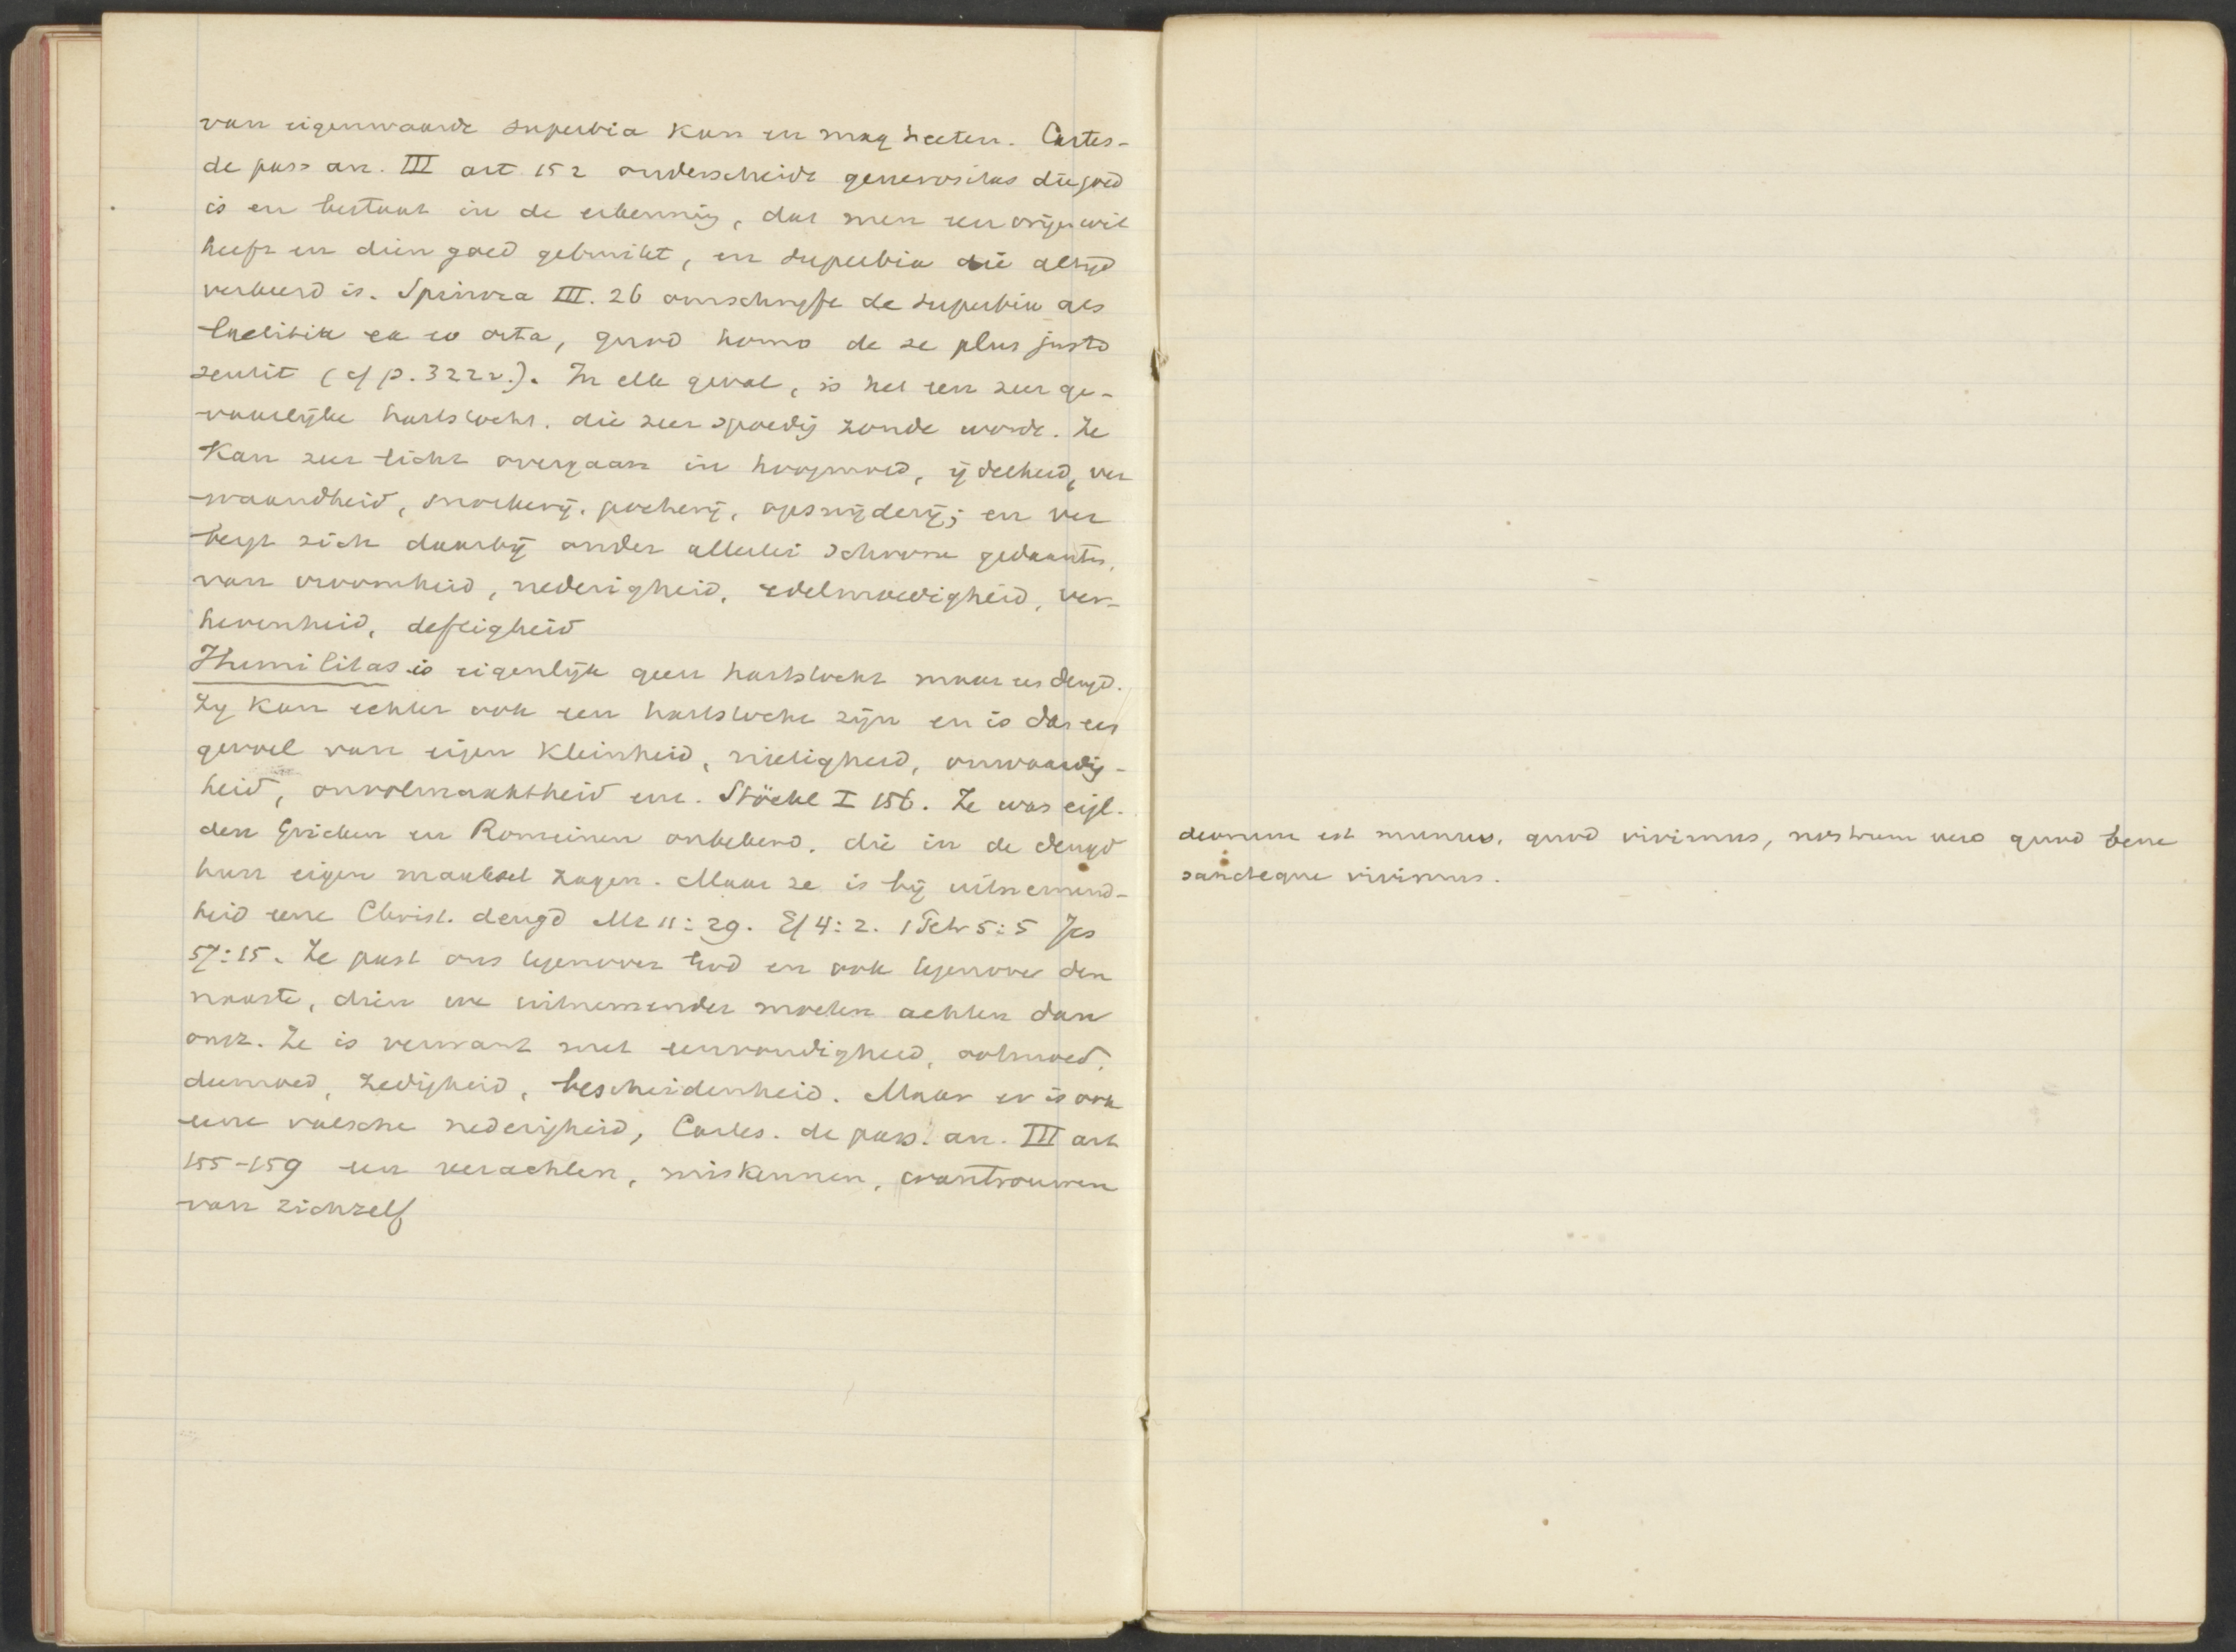 van eigenwaarde superbia kan en mag heeten. Cartes-
de pass an. III art 152 onderscheidt generositas die goed
is en bestaat in de erkenning, dat men een vrijen wil
heeft en dien goed gebruikt, en superbia die altijd
verkeerd is. Spinoza III. 26 omschrijft de superbia als
laetitia ex eo orta, quod homo de se plus justo
sentit (cf p. 322v.). In elk geval, is het een zeer ge-
vaarlijke hartstocht, die zeer spoedig zonde wordt. Ze
kan zeer licht overgaan in hoogmoed, ijdelheid, ver
waandheid, snoeverij, pocherij, opsnijderij; en ver
bergt zich daarbij onder allerlei schoone gedaanten,
van vroomheid, nederigheid, edelmoedigheid, ver-
hevenheid, deftigheid
Humilitas is eigenlijk geen hartstocht maar een deugd.
Zy kan echter ook een hartstocht zijn en is dan een
gevoel van eigen kleinheid, nietigheid, onwaardig-
heid, onvolmaaktheid enz. Stöckl I 156. Ze was eigl.
den Grieken en Romeinen onbekend, die in de deugd
hun eigen maaksel zagen. Maar ze is bij uitnemend-
heid eene Christ. deugd Mt 11:29. Ef 4:2. 1 Petr 5:5 Jes
57:15. Ze past ons tegenover God en ook tegenover den
naaste, dien we uitnemender moeten achten dan
onz. Ze is verwant met eenvoudigheid, ootmoed,
deemoed, zedigheid, bescheidenheid. Maar er is ook
eene valsche nederigheid, Cartes. de pass. an. III art
155-159 een verachten, miskennen, wantrouwen
van zichzelf
deorum est munus, quod vivimus, nostrum vero quod bene
sancteque vivimus.